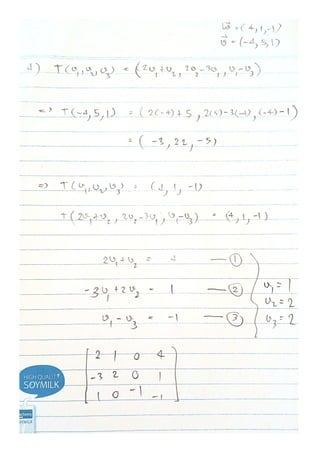 w⃗ = (4,1,-1)
v⃗ = (-4,5,1)
1) T(v₁,v₂,v₃) = (2v₁+v₂, 2v₂-3v₁, v₁-v₃)
=> T(-4,5,1) = (2(-4)+5, 2(5)-3(-4), (-4)-1)
= (-3, 22, -5)
=> T(v₁,v₂,v₃) = (4, 1, -1)
T(2v₁+v₂, 2v₂-3v₁, v₁-v₃) = (4, 1, -1)
2v₁+v₂ = 4 — ①
-3v₁+2v₂ = 1 — ②
v₁-v₃ = -1 — ③
v₁ = 1
v₂ = 2
v₃ = 2
2 1 0 4
-3 2 0 1
1 0 -1 -1
HIGH QUALITY
SOYMILK